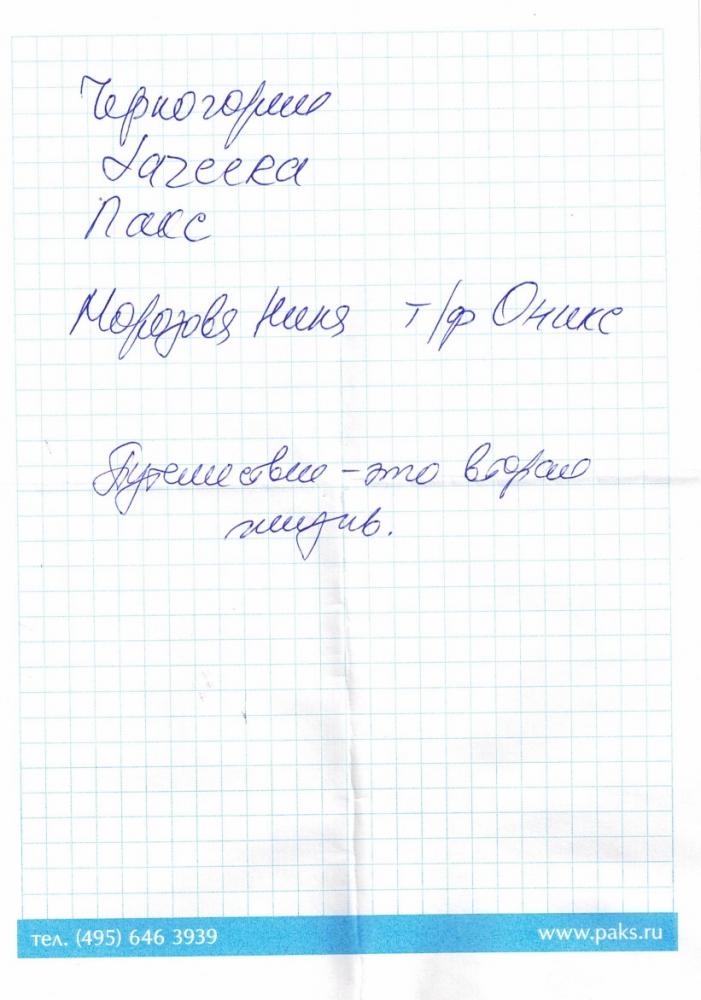 Черногория
Пакс
Морозова Нина т/ф Оникс
Путешествие - это вторая
жизнь.
тел. (495) 646 3939 www.paks.ru